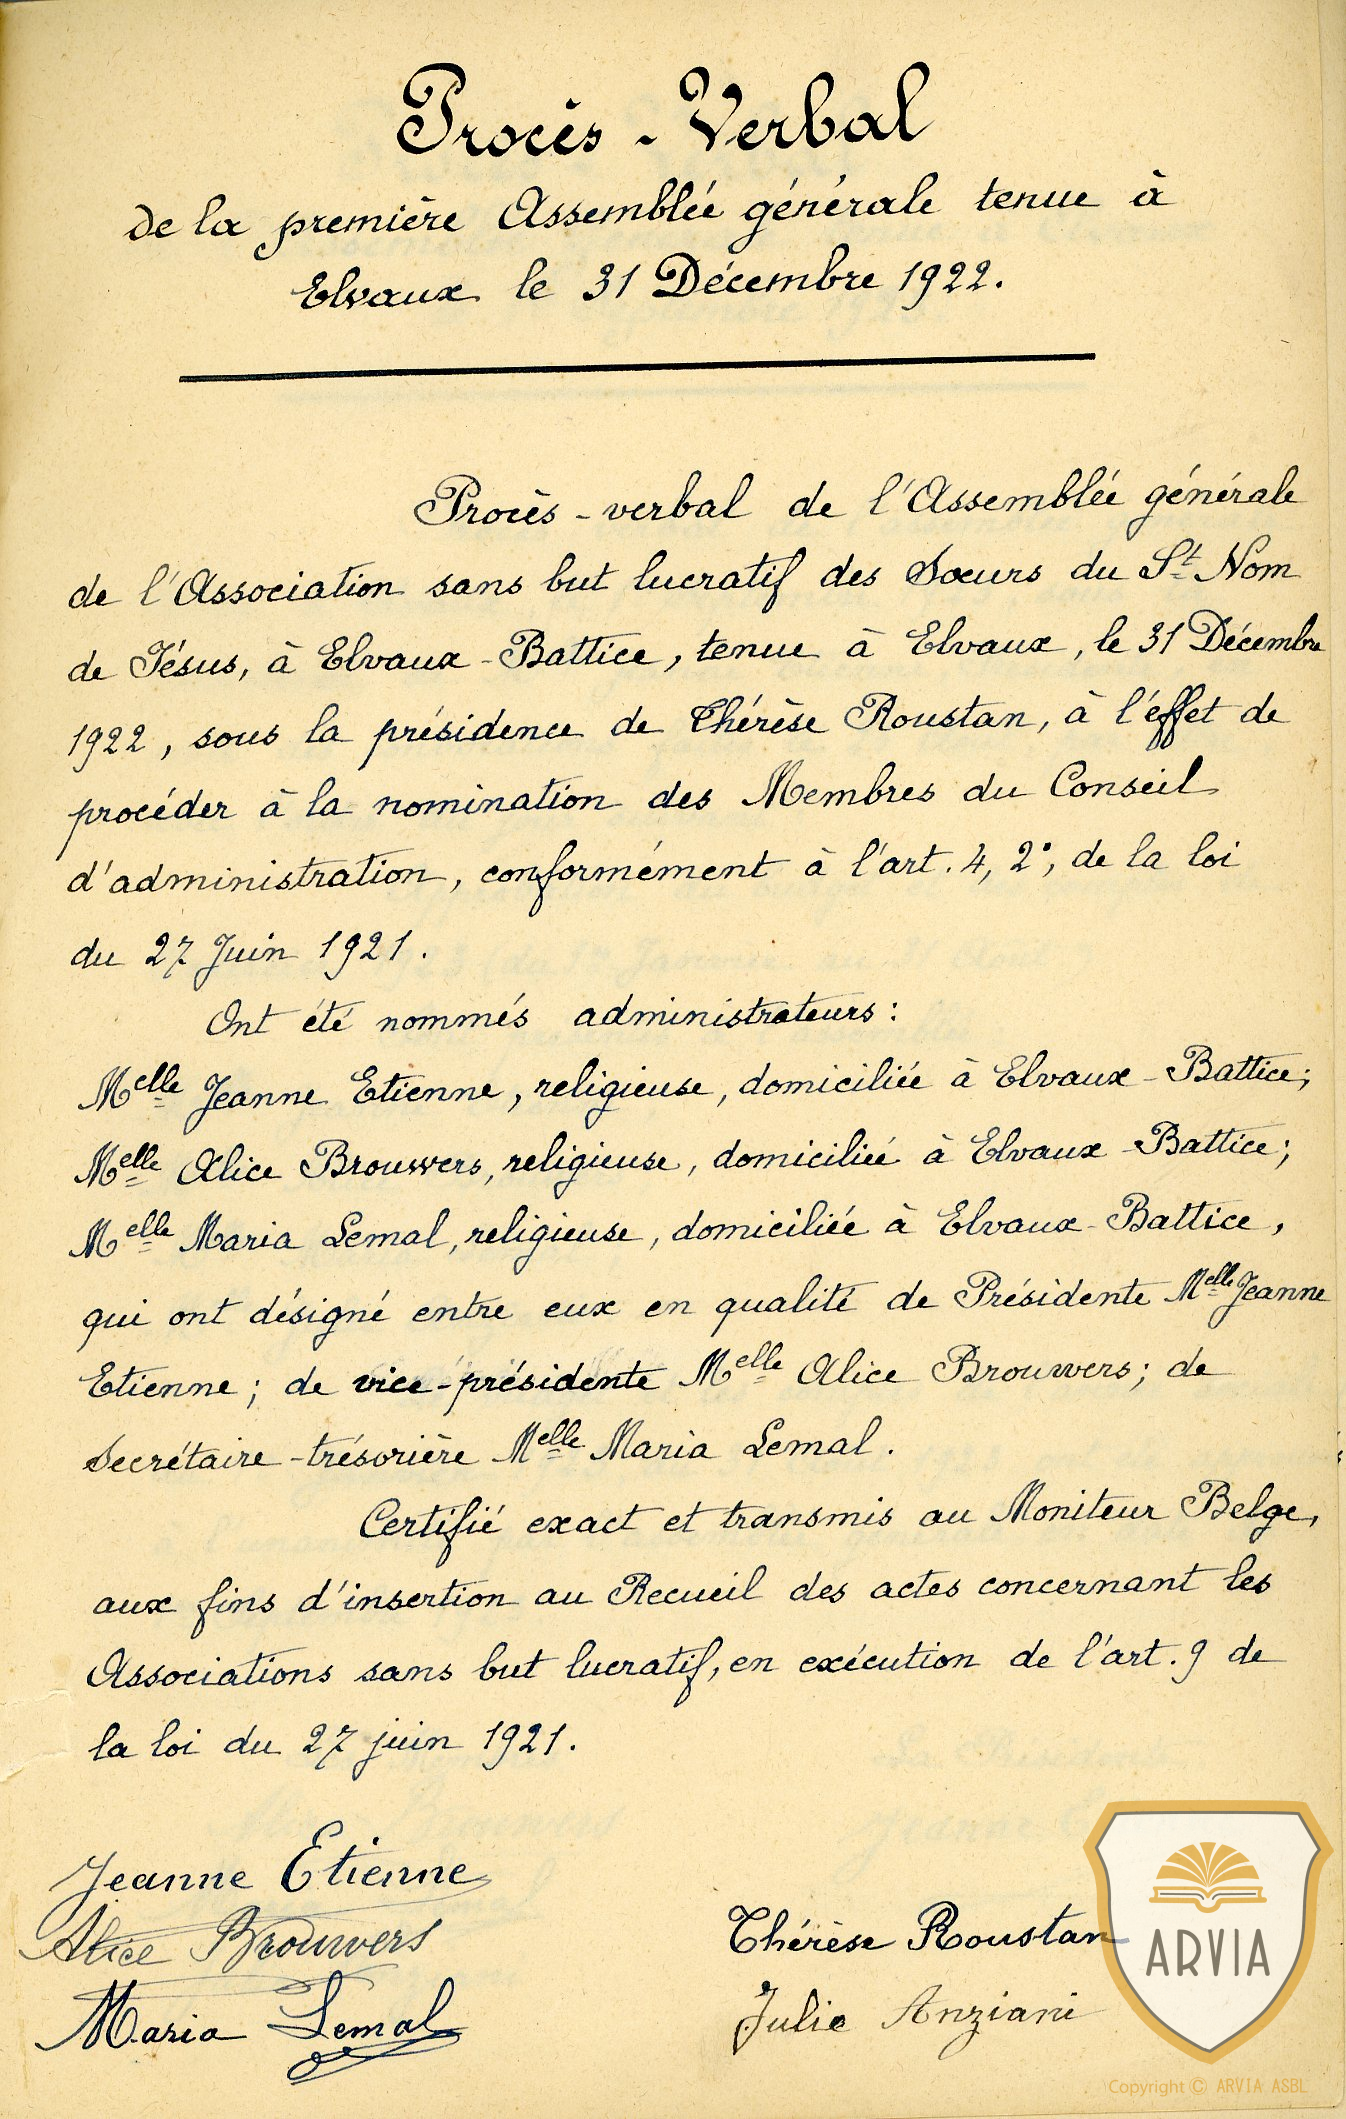 Procès-Verbal
de la première Assemblée générale tenue à
Elvaux le 31 Décembre 1922.
Procès-verbal de l'Assemblée générale
de l'Association sans but lucratif des Soeurs du St Nom
de Jésus, à Elvaux-Battice, tenue à Elvaux, le 31 Décembre
1922, sous la présidence de Thérèse Roustan, à l'effet de
procéder à la nomination des Membres du Conseil
d'administration, conformément à l'art. 4, 2°, de la loi
du 27 Juin 1921.
Ont été nommés administrateurs :
Melle Jeanne Etienne, religieuse, domiciliée à Elvaux-Battice;
Melle Alice Brouwers, religieuse, domiciliée à Elvaux-Battice;
Melle Maria Lemal, religieuse, domiciliée à Elvaux-Battice,
qui ont désigné entre eux en qualité de Présidente Melle Jeanne
Etienne; de vice-présidente Melle Alice Brouwers; de
Secrétaire-trésorière Melle Maria Lemal.
Certifié exact et transmis au Moniteur Belge,
aux fins d'insertion au Recueil des actes concernant les
Associations sans but lucratif, en exécution de l'art. 9 de
la loi du 27 juin 1921.
Jeanne Etienne
Alice Brouwers
Thérèse Roustan
Maria Lemal
Julie Anziani
ARVIA
Copyright © ARVIA ASBL